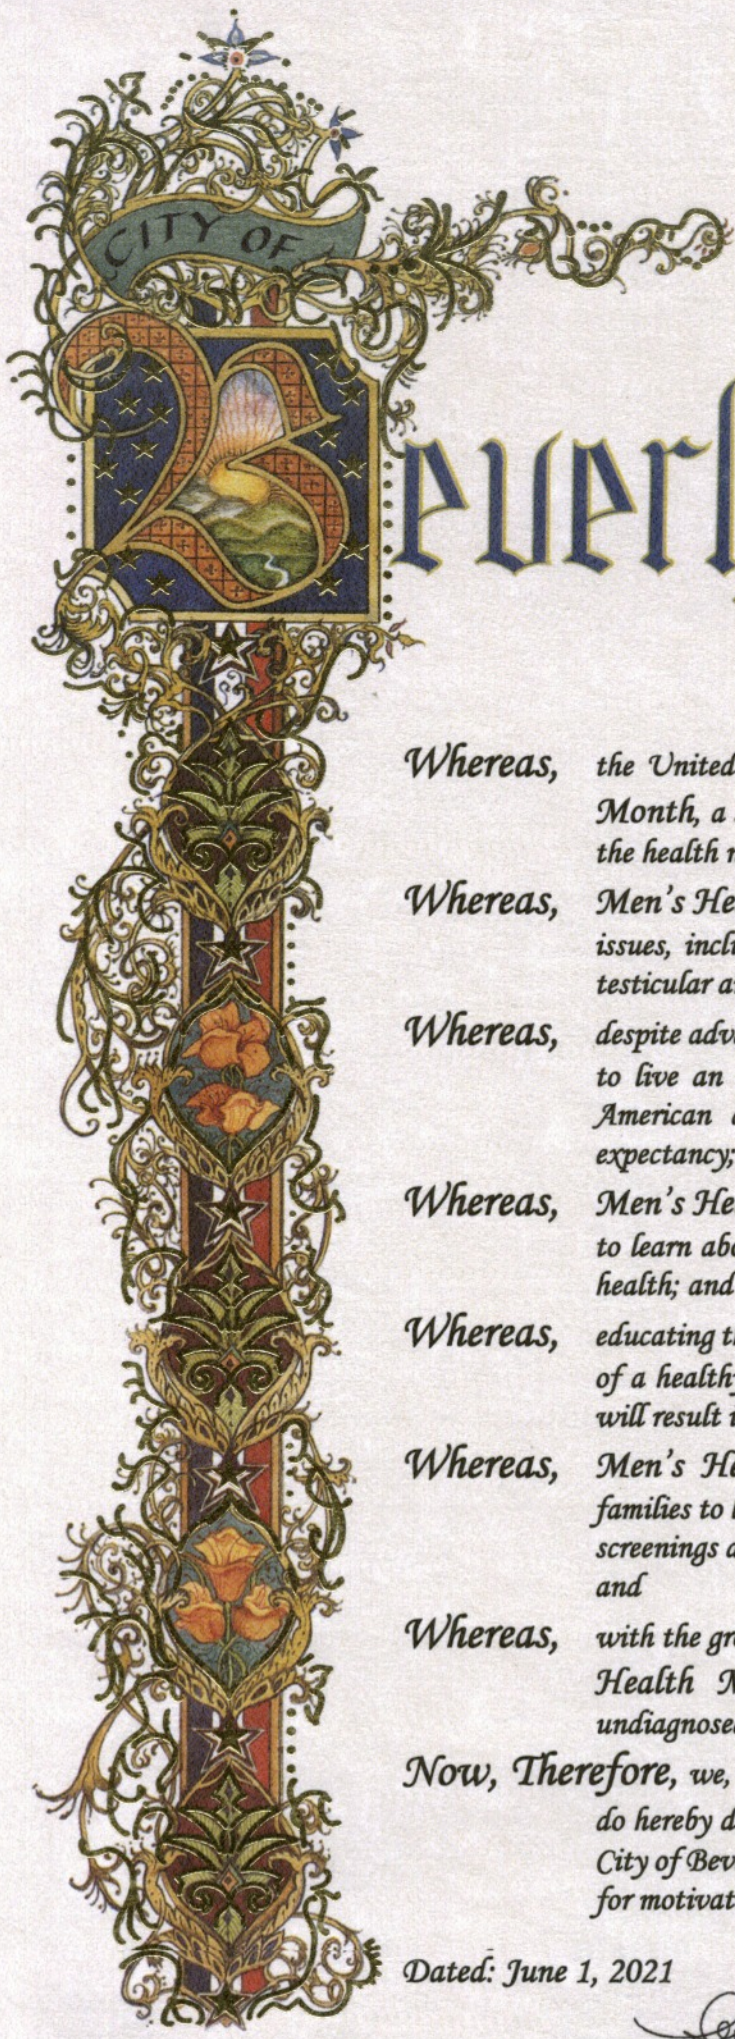 CITY OF
Beverl
Whereas, the United
Month, a
the health
Whereas, Men's He
issues, incl
testicular a
Whereas, despite adv
to live an
American
expectancy;
Whereas, Men's He
to learn abo
health; and
Whereas, educating th
of a health
will result i
Whereas, Men's He
families to
screenings
and
Whereas, with the gr
Health M
undiagnose
Now, Therefore, we,
do hereby d
City of Bev
for motivat
Dated: June 1, 2021